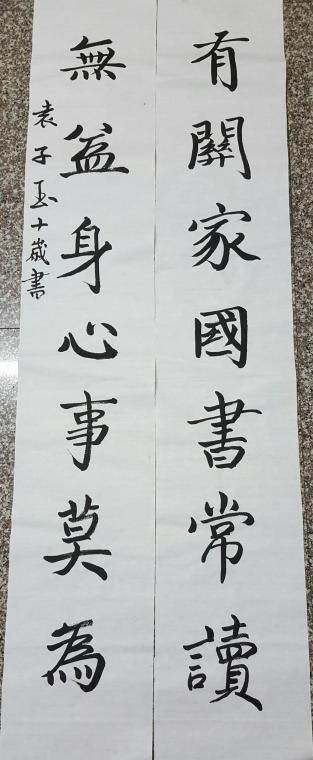 有關家國書常讀
無益身心事莫為
袁子玉十歲書